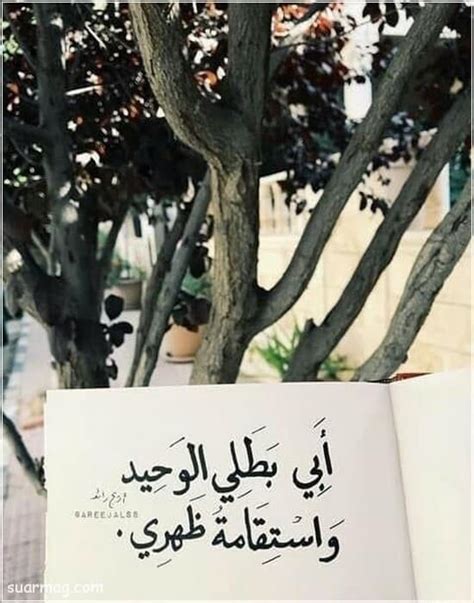 أَبِي بَطَلِي الوَحِيد
وَاسْتِقَامَةُ ظَهرِي.
@AREEJALSS
suarmag.com